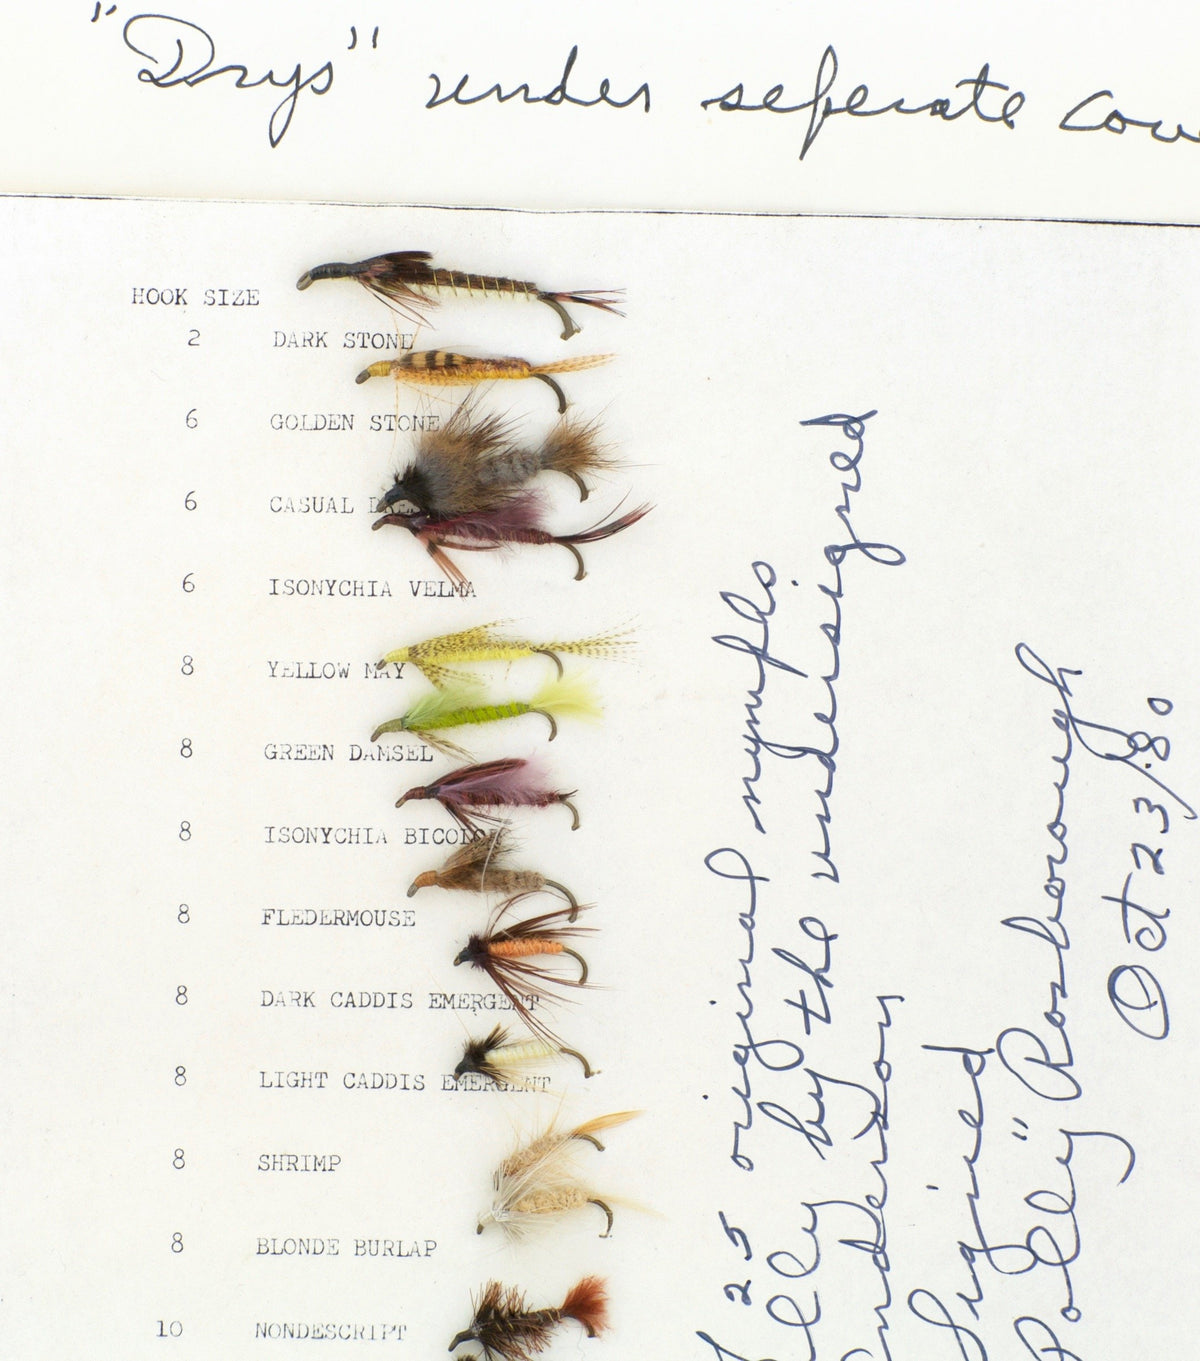 "Drys" under seperate cov
HOOK SIZE
2 DARK STONE
6 GOLDEN STONE
6 CASUAL DRESS
6 ISONYCHIA VELMA
8 YELLOW MAY
8 GREEN DAMSEL
8 ISONYCHIA BICOLOR
8 FLEDERMOUSE
8 DARK CADDIS EMERGENT
8 LIGHT CADDIS EMERGENT
8 SHRIMP
8 BLONDE BURLAP
10 NONDESCRIPT
25 original nymphs
by the undersigned
Signed
"Polly" Rosborough
Oct 23/80